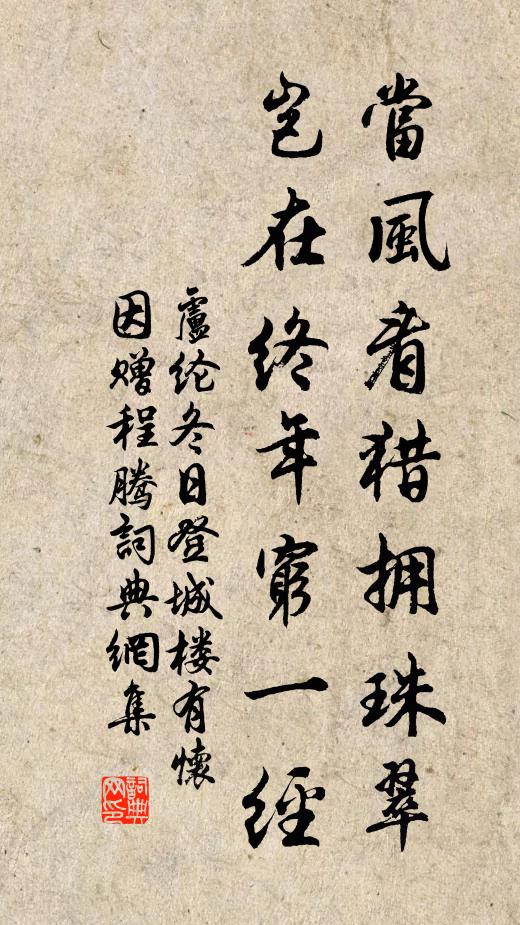 當風看猎拥珠翠
岂在终年窮一經
盧纶冬日登城楼有懷
因赠程腾詞典網集
詞典网印